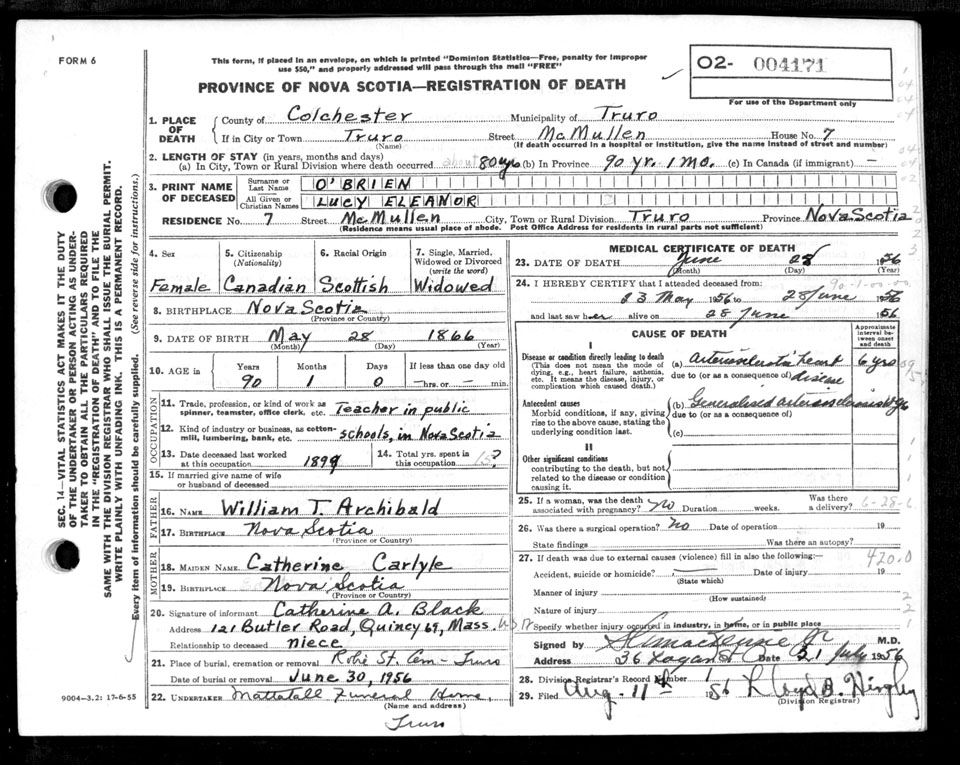 FORM 6
This form, if placed in an envelope, on which is printed "Dominion Statistics—Free, penalty for improper
use $50," and properly addressed will pass through the mail "FREE"
02- 004171
For use of the Department only
PROVINCE OF NOVA SCOTIA—REGISTRATION OF DEATH
1. PLACE OF DEATH
County of Colchester Municipality of Truro
If in City or Town Truro Street McMullen House No. 7
(Name) (If death occurred in a hospital or institution, give the name instead of street and number)
2. LENGTH OF STAY (in years, months and days)
(a) In City, Town or Rural Division where death occurred about 80 yrs (b) In Province 90 yr. 1 mo. (c) In Canada (if immigrant) —
3. PRINT NAME OF DECEASED
Surname or Last Name O'BRIEN
All Given or Christian Names LUCY ELEANOR
RESIDENCE No. 7 Street McMullen City, Town or Rural Division Truro Province Nova Scotia
(Residence means usual place of abode. Post Office Address for residents in rural parts not sufficient)
SEC. 14—VITAL STATISTICS ACT MAKES IT THE DUTY
OF THE UNDERTAKER OR PERSON ACTING AS UNDER-
TAKER TO OBTAIN ALL THE PARTICULARS REQUIRED
IN THE "REGISTRATION OF DEATH" AND TO FILE THE
SAME WITH THE DIVISION REGISTRAR WHO SHALL ISSUE THE BURIAL PERMIT.
WRITE PLAINLY WITH UNFADING INK. THIS IS A PERMANENT RECORD.
Every item of information should be carefully supplied. (See reverse side for instructions.)
4. Sex 5. Citizenship (Nationality) 6. Racial Origin 7. Single, Married, Widowed or Divorced (write the word)
Female Canadian Scottish Widowed
8. BIRTHPLACE Nova Scotia
(Province or Country)
9. DATE OF BIRTH May 28 1866
(Month) (Day) (Year)
10. AGE in Years Months Days If less than one day old
90 1 0 — hrs. or — min.
OCCUPATION
11. Trade, profession, or kind of work as spinner, teamster, office clerk, etc. Teacher in public
12. Kind of industry or business, as cotton-mill, lumbering, bank, etc. schools, in Nova Scotia
13. Date deceased last worked at this occupation 1899 14. Total yrs. spent in this occupation 15?
15. If married give name of wife or husband of deceased
FATHER
16. NAME William T. Archibald
17. BIRTHPLACE Nova Scotia
(Province or Country)
MOTHER
18. MAIDEN NAME Catherine Carlyle
19. BIRTHPLACE Nova Scotia
(Province or Country)
20. Signature of informant Catherine A. Black
Address 121 Butler Road, Quincy 69, Mass. USA
Relationship to deceased niece
21. Place of burial, cremation or removal Robie St. Cem - Truro
Date of burial or removal June 30, 1956
22. UNDERTAKER Mattatall Funeral Home,
(Name and address)
Truro
9004-3.2: 17-6-55
MEDICAL CERTIFICATE OF DEATH
23. DATE OF DEATH June 28 1956
(Month) (Day) (Year)
24. I HEREBY CERTIFY that I attended deceased from: 90-1-00-00
23 May 1956 to 28 June 1956
and last saw her alive on 28 June 1956
CAUSE OF DEATH
Approximate interval between onset and death
I
Disease or condition directly leading to death
(This does not mean the mode of dying, e.g., heart failure, asthenia, etc. It means the disease, injury, or complication which caused death.)
(a) Arteriosclerotic heart disease 6 yrs
due to (or as a consequence of)
Antecedent causes
Morbid conditions, if any, giving rise to the above cause, stating the underlying condition last.
(b) Generalised arteriosclerosis
due to (or as a consequence of)
(c)
II
Other significant conditions
contributing to the death, but not related to the disease or condition causing it.
25. If a woman, was the death associated with pregnancy? No Duration weeks. Was there a delivery? 6-28-6
26. Was there a surgical operation? No Date of operation 19
State findings Was there an autopsy?
27. If death was due to external causes (violence) fill in also the following:— 420.0
Accident, suicide or homicide? Date of injury 19
(State which)
Manner of injury
(How sustained)
Nature of injury
Specify whether injury occurred in industry, in home, or in public place
Signed by M.D.
Address 36 Logan St Date 21 July 1956
28. Division Registrar's Record Number 1
29. Filed Aug - 11th 1956 Lloyd A. Hingley
(Division Registrar)